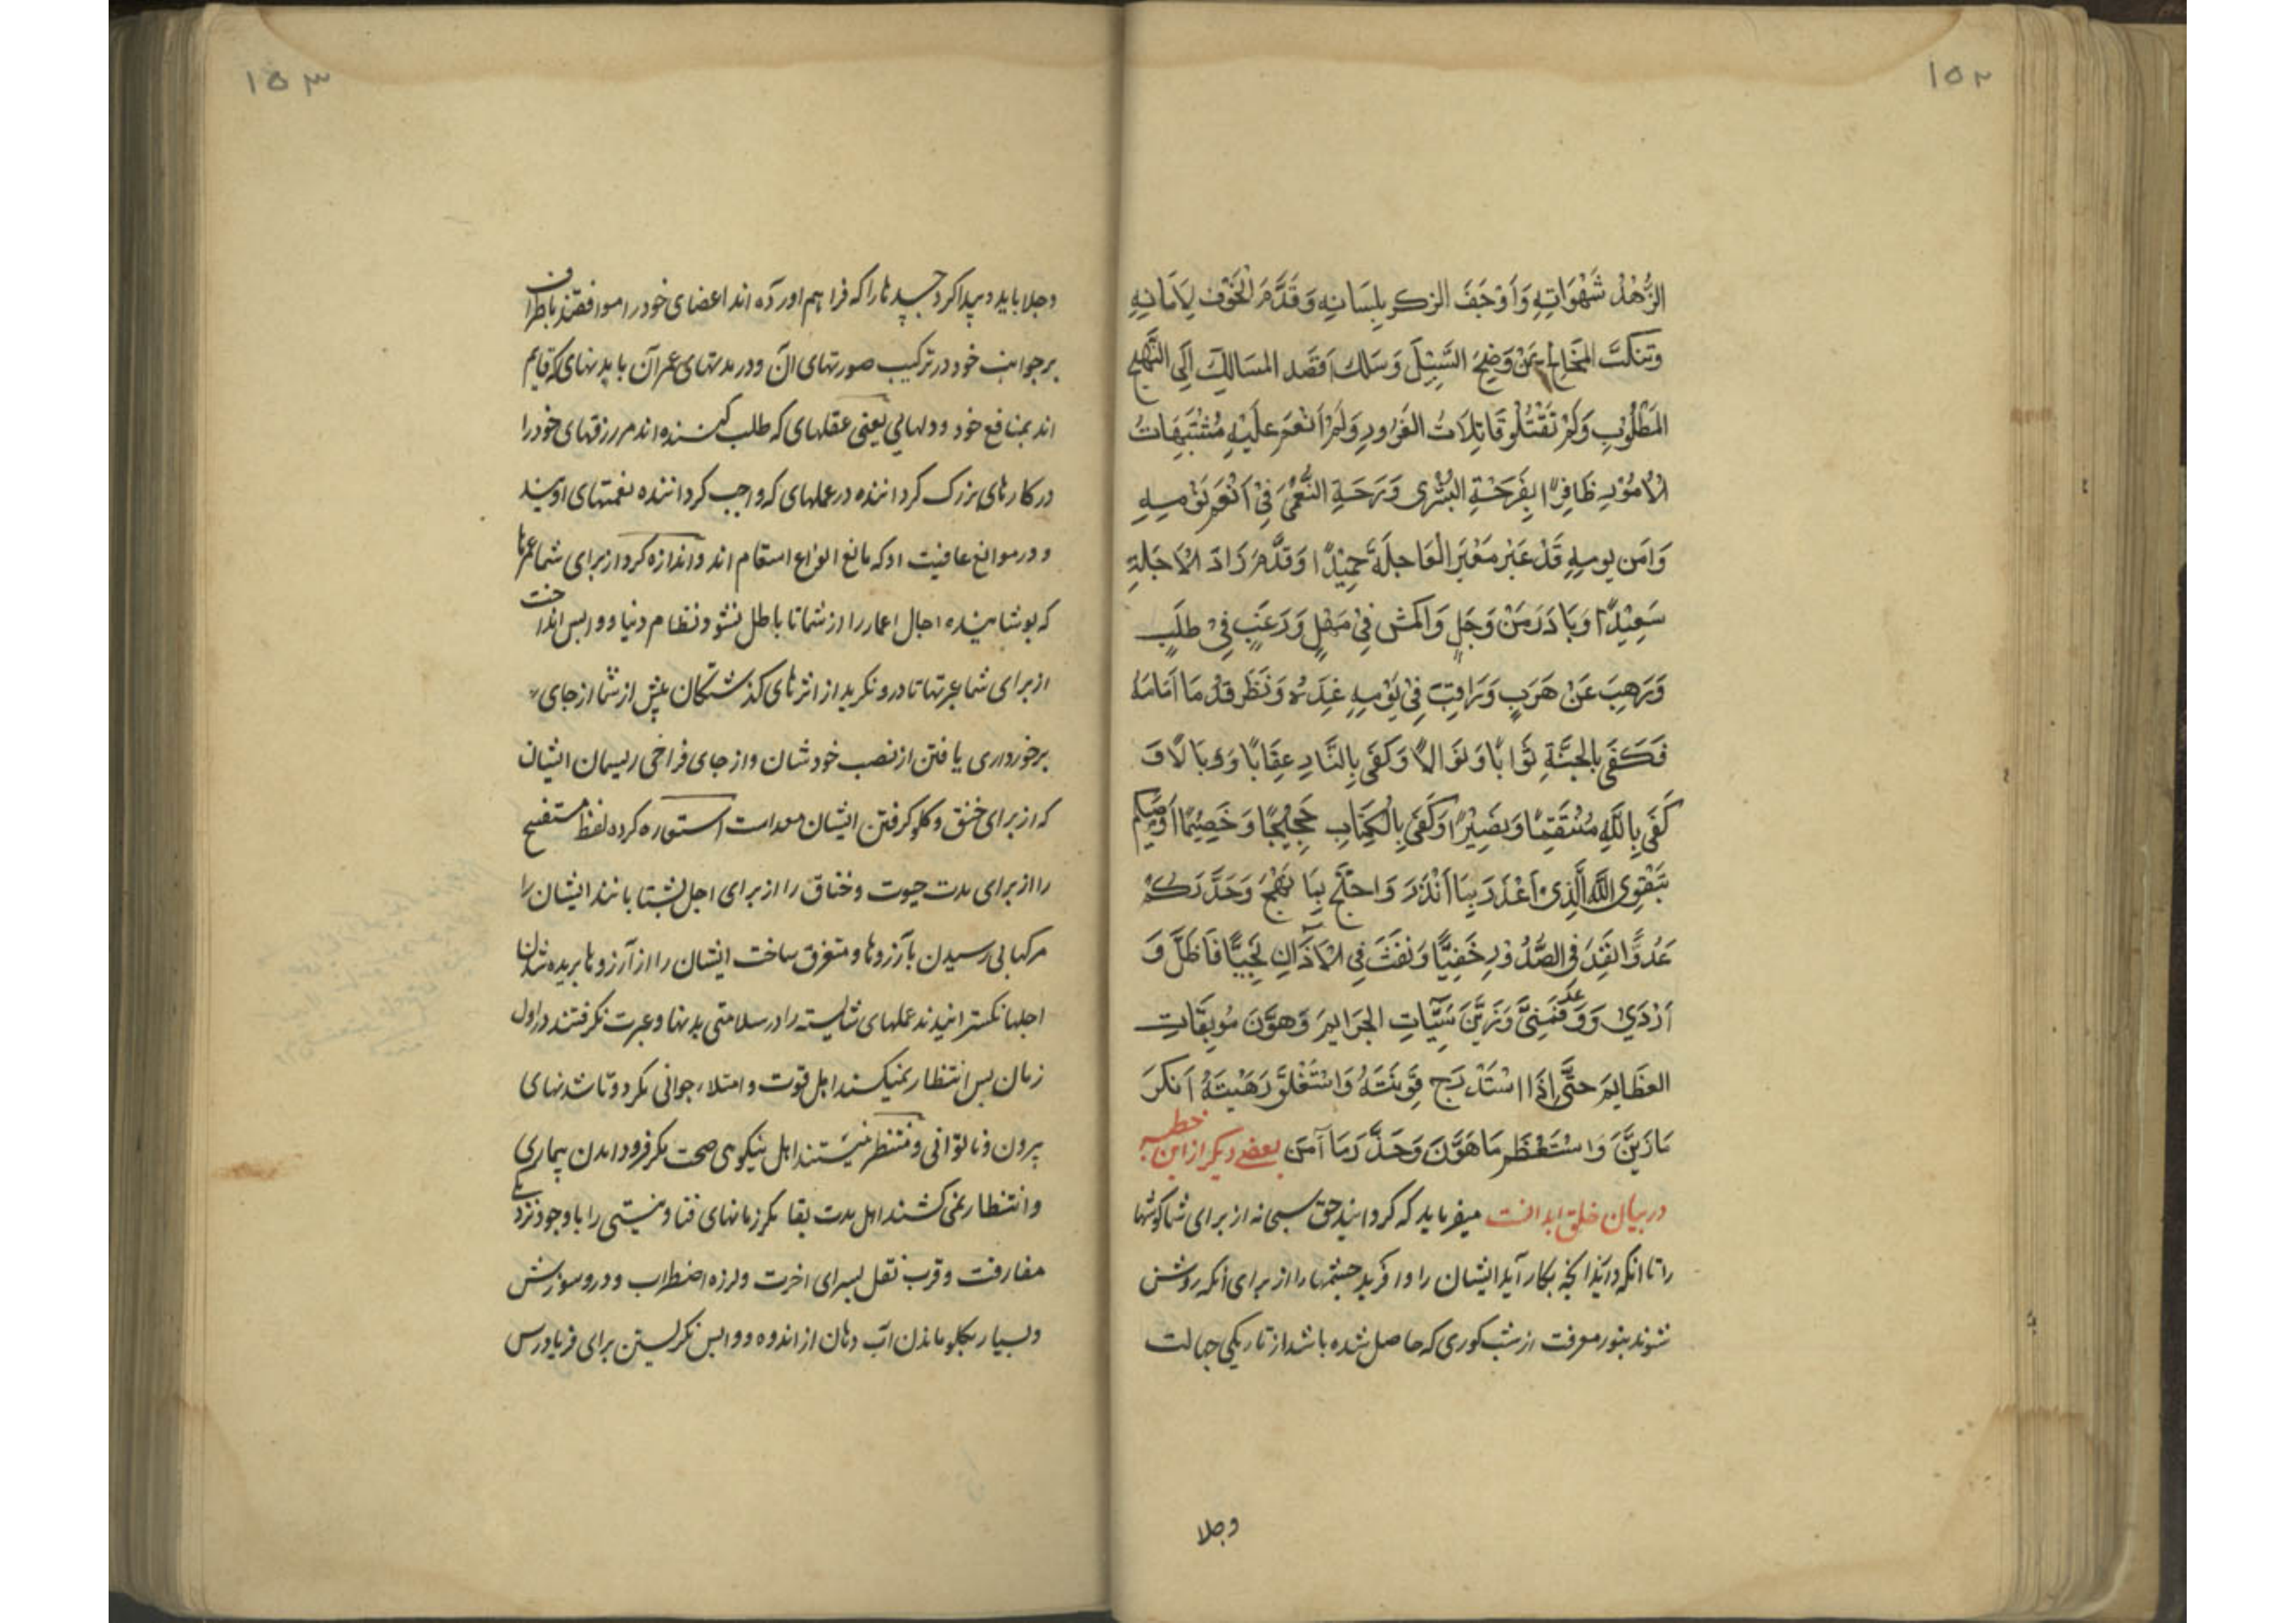 ۱۵۲
الزُّهْدُ شَهَوَاتِهِ وَاَوْجَفَ الذکر بِلِسَانِهِ وَقَدَّمَ الْخَوْفَ لِاَمَانِهِ
وتنکبَ المَخَالِجَ عَنْ وَضِحِ السَّبِيْلِ وَسَلَكَ اَقصَد المَسَالِكِ اِلَی النَّهْجِ
المَطْلُوْبِ وَلَمْ تَفْتُلْهُ قَاتِلَاتُ الغُرُورِ وَلَمْ اَنْعَمَ عَلَيْهِ مُشْتَبِهَاتُ
الْاُمُوْرِ ظَافِرًا بِفَرَحْةِ البُشْرٰی وَرَحَةِ النُّعْمٰیَ فِیْ اَنْعَمِ نَوْمِهِ
وَاٰمَن یومِهِ قَدْ عَبَرَ مَعْبَرَ الْعَاجِلَةِ حَمِيْدًا وَقَدَّمَ زَادَ الْاٰجِلَةِ
سَعِيْدًا وَبَادَرَ مِنْ وَجَلٍ وَاکمَشَ فِیْ مَهَلٍ وَرَغِبَ فِیْ طَلَبٍ
وَرَهِبَ عَنْ هَرَبٍ وَرَاقَبَ فِیْ یَوْمِهِ غَدَهُ وَنَظَر قدُمًا اَمَامَهُ
فَکَفٰی بِالجَنَّةِ ثَوَابًا وَنَوَالًا وَکَفٰی بِالنَّارِ عِقَابًا وَوَبَالًا وَ
کَفٰی بِاللّٰهِ مُنْتَقِمًا وَنَصِیْرًا وَکَفٰی بِالْکِتَابِ حَجِیْجًا وَخَصِیْمًا اُوْصِیْکُم
بِتَقْوِی اللّٰهِ الَّذِیْ اَعْذَرَ بِمَا اَنْذَرَ وَاحتَجَّ بِمَا نَهَجَ وَحَذَّرَکُمْ
عَدُوًّا نَفَذَ فِی الصُّدُوْرِ خَفِیًّا وَنَفَثَ فِی الْاٰذَانِ نَجِیًّا فَاَضَلَّ وَ
اَرْدٰی وَوَعَدَ فَمَنّٰی وَزَیَّنَ سَیِّئَاتِ الجَرَایِمِ وَهَوَّنَ مُوبِقَاتِ
العَظَایِمِ حَتّٰی اِذَا اسْتَدْرَجَ قَرِیْنَتَهُ وَاسْتَغْلَقَ رَهِیْنَتَهُ اَنکَرَ
مَا زَیَّنَ وَاسْتَعْظَمَ مَا هَوَّنَ وَحَذَّرَ مَا آمَنَ بعضی دیگر از این خطبه
در بیان خلق است میفرماید که گردانید حق سبحانه از برای شما گوشها
را تا انکه دانند انچه بکار آید ایشان را و افرید چشمها را از برای انکه روشن
شوند بنور معرفت از شب کوری که حاصل شده باشد از تاریکی جهالت
وجلا
۱۵۳
وجلا باید و پیدا کرد جسدها را که فراهم اورده اند اعضای خود را موافقند باطراف
برجوانب خود در ترکیب صورتهای آن و در مدتهای عمر آن با بدنهای که قایم
اند بمنافع خود و دلهایی یعنی عقلهای که طلب کننده اند مر رزقهای خود را
در کارهای بزرک کرداننده در عملهای که واجب کرداننده نعمتهای اویند
و در موانع عافیت او که مانع انواع اسقام اند و اندازه کرد از برای شما عمرها
که پوشانیده اجال اعمار را از شما تا باطل نشود نظام دنیا و واپس انداخت
از برای شما عبرتها تا درو نکرید از اثرهای کذشتکان پیش از شما از جای
برخورداری یافتن از نصیب خودشان و از جای فراخی ریسمان ایشان
که از برای خنق و کلو کرفتن ایشان معد است استعاره کرده لفظ مستفسح
را از برای مدت حیوت و خناق را از برای اجل بشتابانند ایشان را
مرکها بی رسیدن بآرزوها و متفرق ساخت ایشان را از آرزوها بریده شدن
اجلها نکسترانیدند عملهای شایسته را در سلامتی بدنها و عبرت نکرفتند در اول
زمان پس انتظار نمیکشند اهل قوت و امتلاء جوانی مکر دوتا شدنهای
پیری و ناتوانی و منتظر نیستند اهل نیکویی صحت مکر فرود امدن بیماری
و انتظار نمی کشند اهل مدت بقا مکر زمانهای فنا و نیستی را با وجود نزدیکی
مفارقت و قرب نقل بسرای اخرت و لرزه اضطراب و درد سوزش
و بسیار بکلو ماندن آب دهان از اندوه و واپس نکریستن برای فریادرس